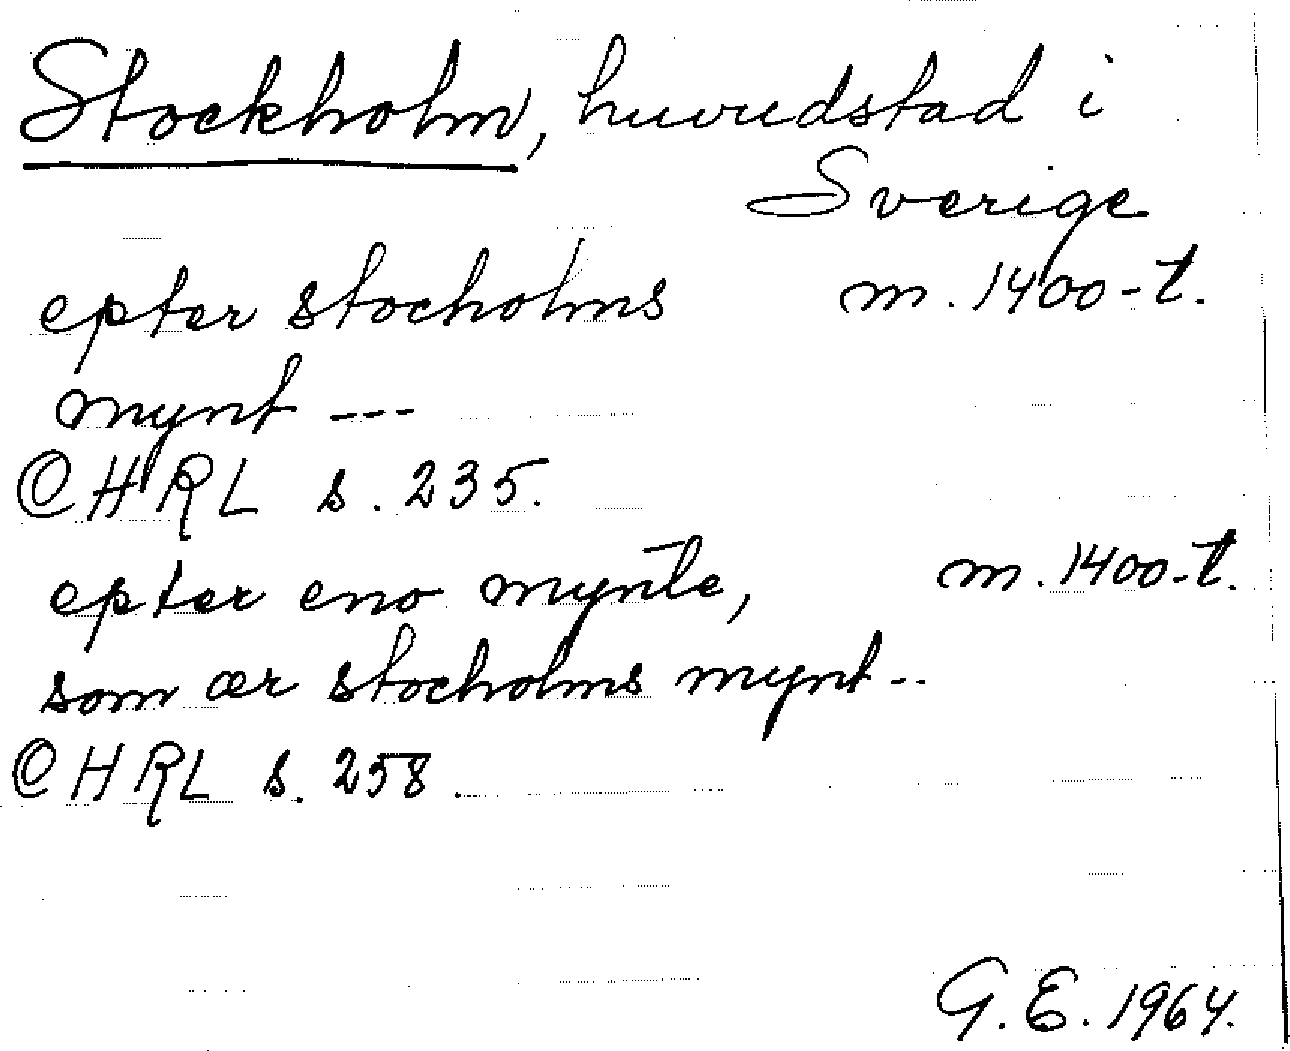 Stockholm, huvudstad i
Sverige
epter stocholms m. 1400-t.
mynt ---
© HRL s. 235.
epter eno mynte, m. 1400-t.
som ær stocholms mynt--
© HRL s. 258.
G. E. 1964.